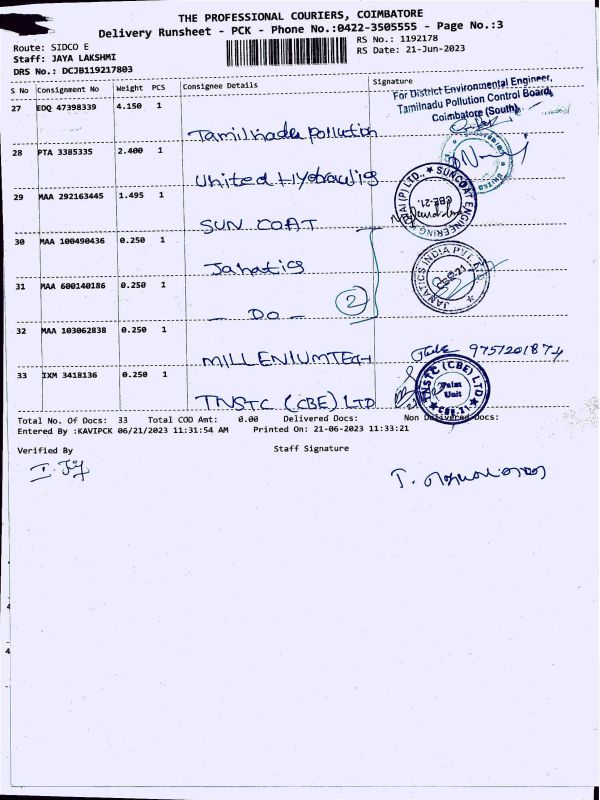 THE PROFESSIONAL COURIERS, COIMBATORE
Delivery Runsheet - PCK - Phone No.:0422-3505555 - Page No.:3
Route: SIDCO E
RS No.: 1192178
Staff: JAYA LAKSHMI
RS Date: 21-Jun-2023
DRS No.: DCJB119217803
S No Consignment No Weight PCS Consignee Details Signature
27 EDQ 47398339 4.150 1
For District Environmental Engineer,
Tamilnadu Pollution Control Board,
Coimbatore (South)
Tamilnadu Pollution
28 PTA 3385335 2.400 1
United Hydraulis
29 MAA 292163445 1.495 1
SUNCOAT ENGINEERING KOVAI (P) LTD.,
CBE-21.
SUN COAT
30 MAA 100490436 0.250 1
Janatics
JANATICS INDIA PVT. LTD.
CBE-21
31 MAA 600140186 0.250 1
2
- DO -
32 MAA 103062838 0.250 1
MILLENIUMTECH
9751201874
33 IXM 3418136 0.250 1
TNSTC (CBE) LTD
Palm
Unit
CBE-21
TNSTC (CBE) LTD
Total No. Of Docs: 33 Total COD Amt: 0.00 Delivered Docs: Non Delivered Docs:
Entered By :KAVIPCK 06/21/2023 11:31:54 AM Printed On: 21-06-2023 11:33:21
Verified By Staff Signature